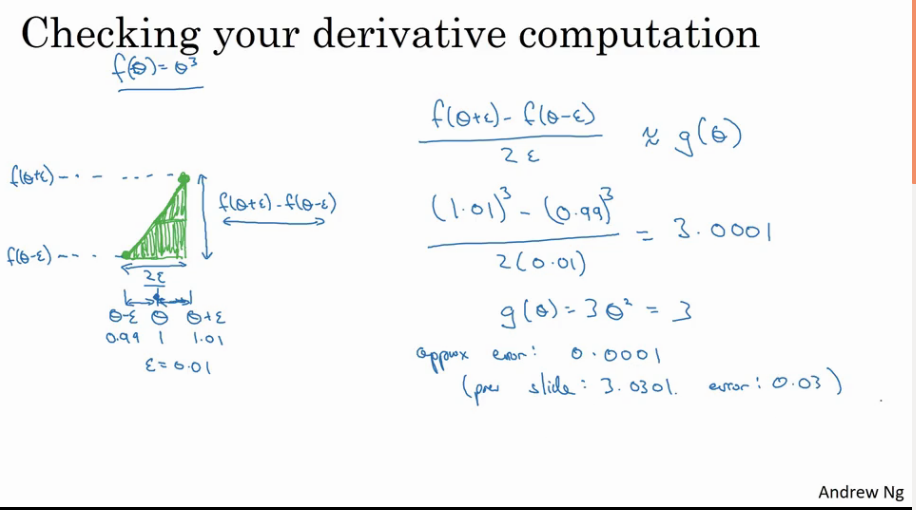 Checking your derivative computation
f(θ) = θ³
f(θ+ε) - f(θ-ε)
2ε
≈ g(θ)
f(θ+ε)
f(θ+ε) - f(θ-ε)
(1.01)³ - (0.99)³
2(0.01)
= 3.0001
f(θ-ε)
2ε
θ-ε θ θ+ε
0.99 1 1.01
ε = 0.01
g(θ) = 3θ² = 3
approx error: 0.0001
(prev slide: 3.0301. error: 0.03)
Andrew Ng